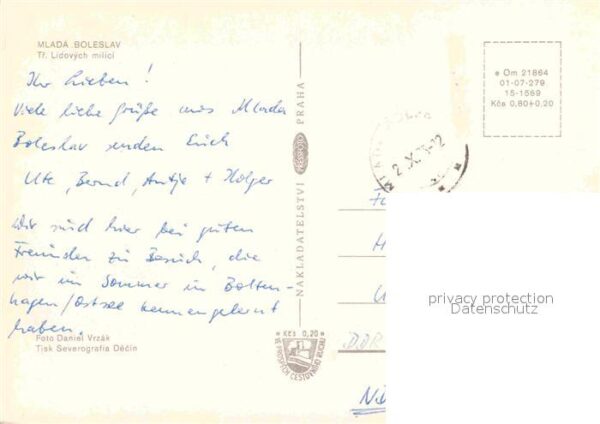 MLADÁ BOLESLAV
Tř. Lidových milicí
Ihr Lieben!
Viele liebe Grüße aus Mlada
Boleslav senden Euch
Ute, Bernd, Antje + Holger
Wir sind hier bei guten
Freunden zu Besuch, die
wir im Sommer in Bolten-
hagen/Ostsee kennengelernt
haben.
Foto Daniel Vrzák
Tisk Severografia Děčín
NAKLADATELSTVÍ PRESSFOTO PRAHA
* Kčs 0,20 *
VE PROSPĚCH CESTOVNÍHO RUCHU
Om 21864
01-07-279
15-1569
Kčs 0,80+0,20
DDR
privacy protection
Datenschutz